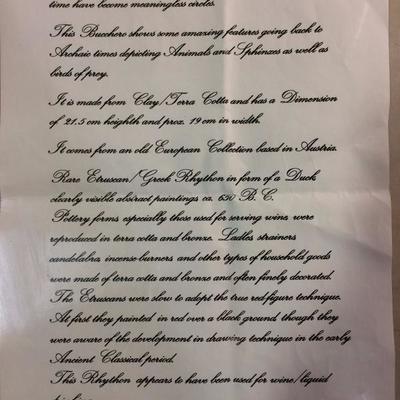 time have become meaningless circles.
This Bucchero shows some amazing features going back to
Archaic times depicting Animals and Sphinxes as well as
birds of prey.
It is made from Clay/Terra Cotta and has a Dimension
of 21.5 cm heighth and proz. 19 cm in width.
It comes from an old European Collection based in Austria.
Rare Etruscan/Greek Rhython in form of a Duck
clearly visible abstract paintings ca. 650 B. C.
Pottery forms, especially those used for serving wine, were
reproduced in terra cotta and bronze. Ladles strainers
candelabra incense burners and other types of household goods
were made of terra cotta and bronze and often finely decorated.
The Etruscans were slow to adopt the true red figure technique.
At first they painted in red over a black ground though they
were aware of the development in drawing technique in the early
Ancient Classical period.
This Rhython appears to have been used for wine/liquid